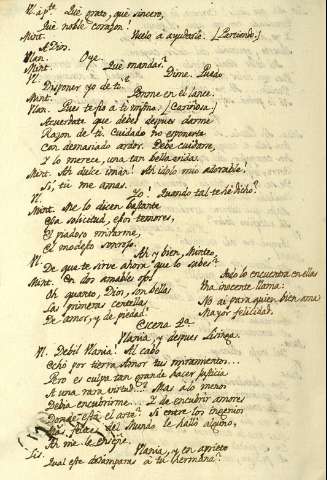 Vl. ap.te Qué grato, qué sincero,
Qué noble corazon!
Mint. Vuelo á ayudarle. (Partiendo.)
A Dios.
Vlan. Oye.
Mint. Qué mandas?
Vl. Dime. Puedo
Disponer yo de ti?
Mint. Ponme en el lance.
Vlan. Pues te fio á ti misma. (Cariñosa)
Acuerdate que debes despues darme
Razon de ti. Cuidado no esponerla
Con demasiado ardor. Debe cuidarse,
Y lo merece, una tan bella vida.
Mint. Ah dulce iman! Ah idolo mio adorable!
Si, tú me amas.
Vl. Yo! Quando tal te hé dicho?
Mint. Me lo dicen bastante
Esa solicitud, esos temores,
El piadoso mirarme,
El modesto sonrojo.
Vl. Ah y bien, Minteo,
De que te sirve ahora que lo sabes?
Mint. En dos amables ojos
Oh quanto, Dios, son bellas
Las primeras centellas
De amor, y de piedad!
Todo lo encuentra en ellas
Una inocente llama:
No ai para quien bien ama
Mayor felicidad.
Escena 4.a
Vlania, y despues Lisinga.
Vl. Debil Vlania! Al cabo
Echó por tierra Amor tus miramentos...
Pero es culpa tan grande hacer justicia
A una rara virtud? Mas á lo menos
Debia encubrirme... Y de encubrir amores
Donde está el arte? Si entre los ingenios
del Mundo le halló alguno,
Ah me le enseñe.
Lis. Vlania, y en aprieto
Qual este desamparas á tu hermana?